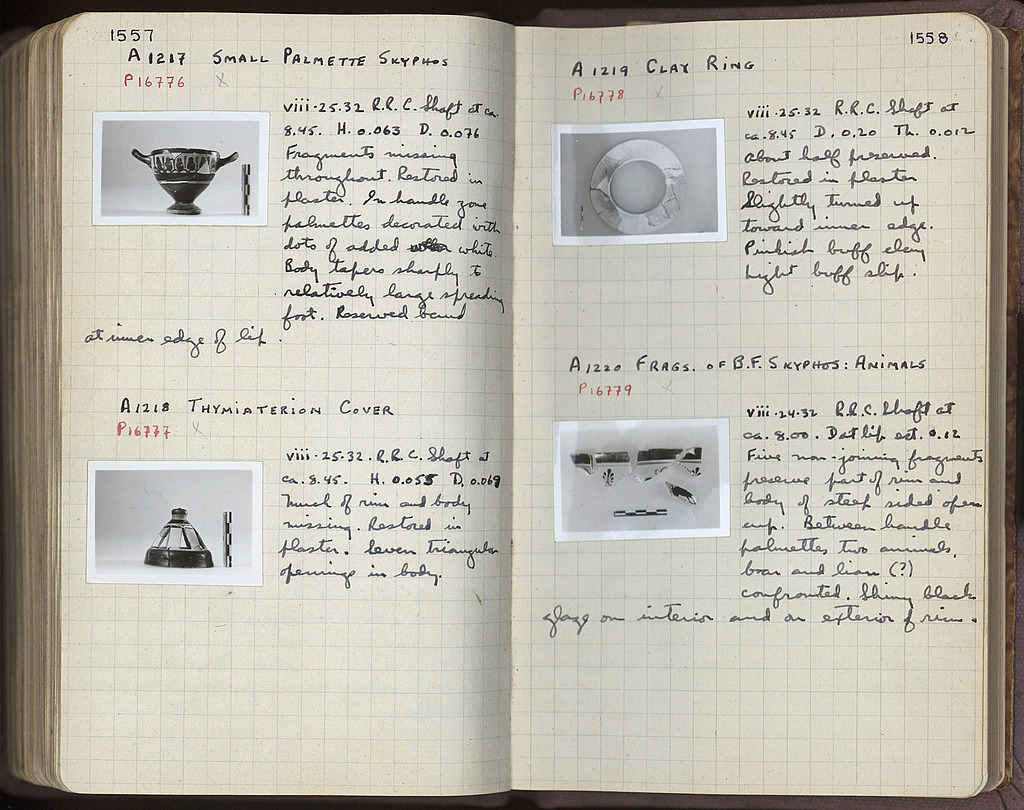 1557
A 1217 SMALL PALMETTE SKYPHOS
P16776 X
viii.25.32 R.R.C. Shaft at ca.
8.45. H. 0.063 D. 0.076
Fragments missing
throughout. Restored in
plaster. In handle zone
palmettes decorated with
dots of added white.
Body tapers sharply to
relatively large spreading
foot. Reserved band
at inner edge of lip.
A1218 THYMIATERION COVER
P16777 X
viii.25.32. R.R.C. Shaft at
ca. 8.45. H. 0.055 D. 0.069
Much of rim and body
missing. Restored in
plaster. Seven triangular
openings in body.
1558
A 1219 CLAY RING
P16778 X
viii.25.32 R.R.C. Shaft at
ca. 8.45 D. 0.20 Th. 0.012
About half preserved.
Restored in plaster
Slightly turned up
toward inner edge.
Pinkish buff clay
Light buff slip.
A1220 FRAGS. OF B.F. SKYPHOS: ANIMALS
P16779 X
viii.24.32 R.R.C. Shaft at
ca. 8.00. D at lip est. 0.12
Five non-joining fragments
preserve part of rim and
body of steep sided open
cup. Between handle
palmettes two animals,
boar and lion (?)
confronted. Shiny black
glaze on interior and on exterior of rim.